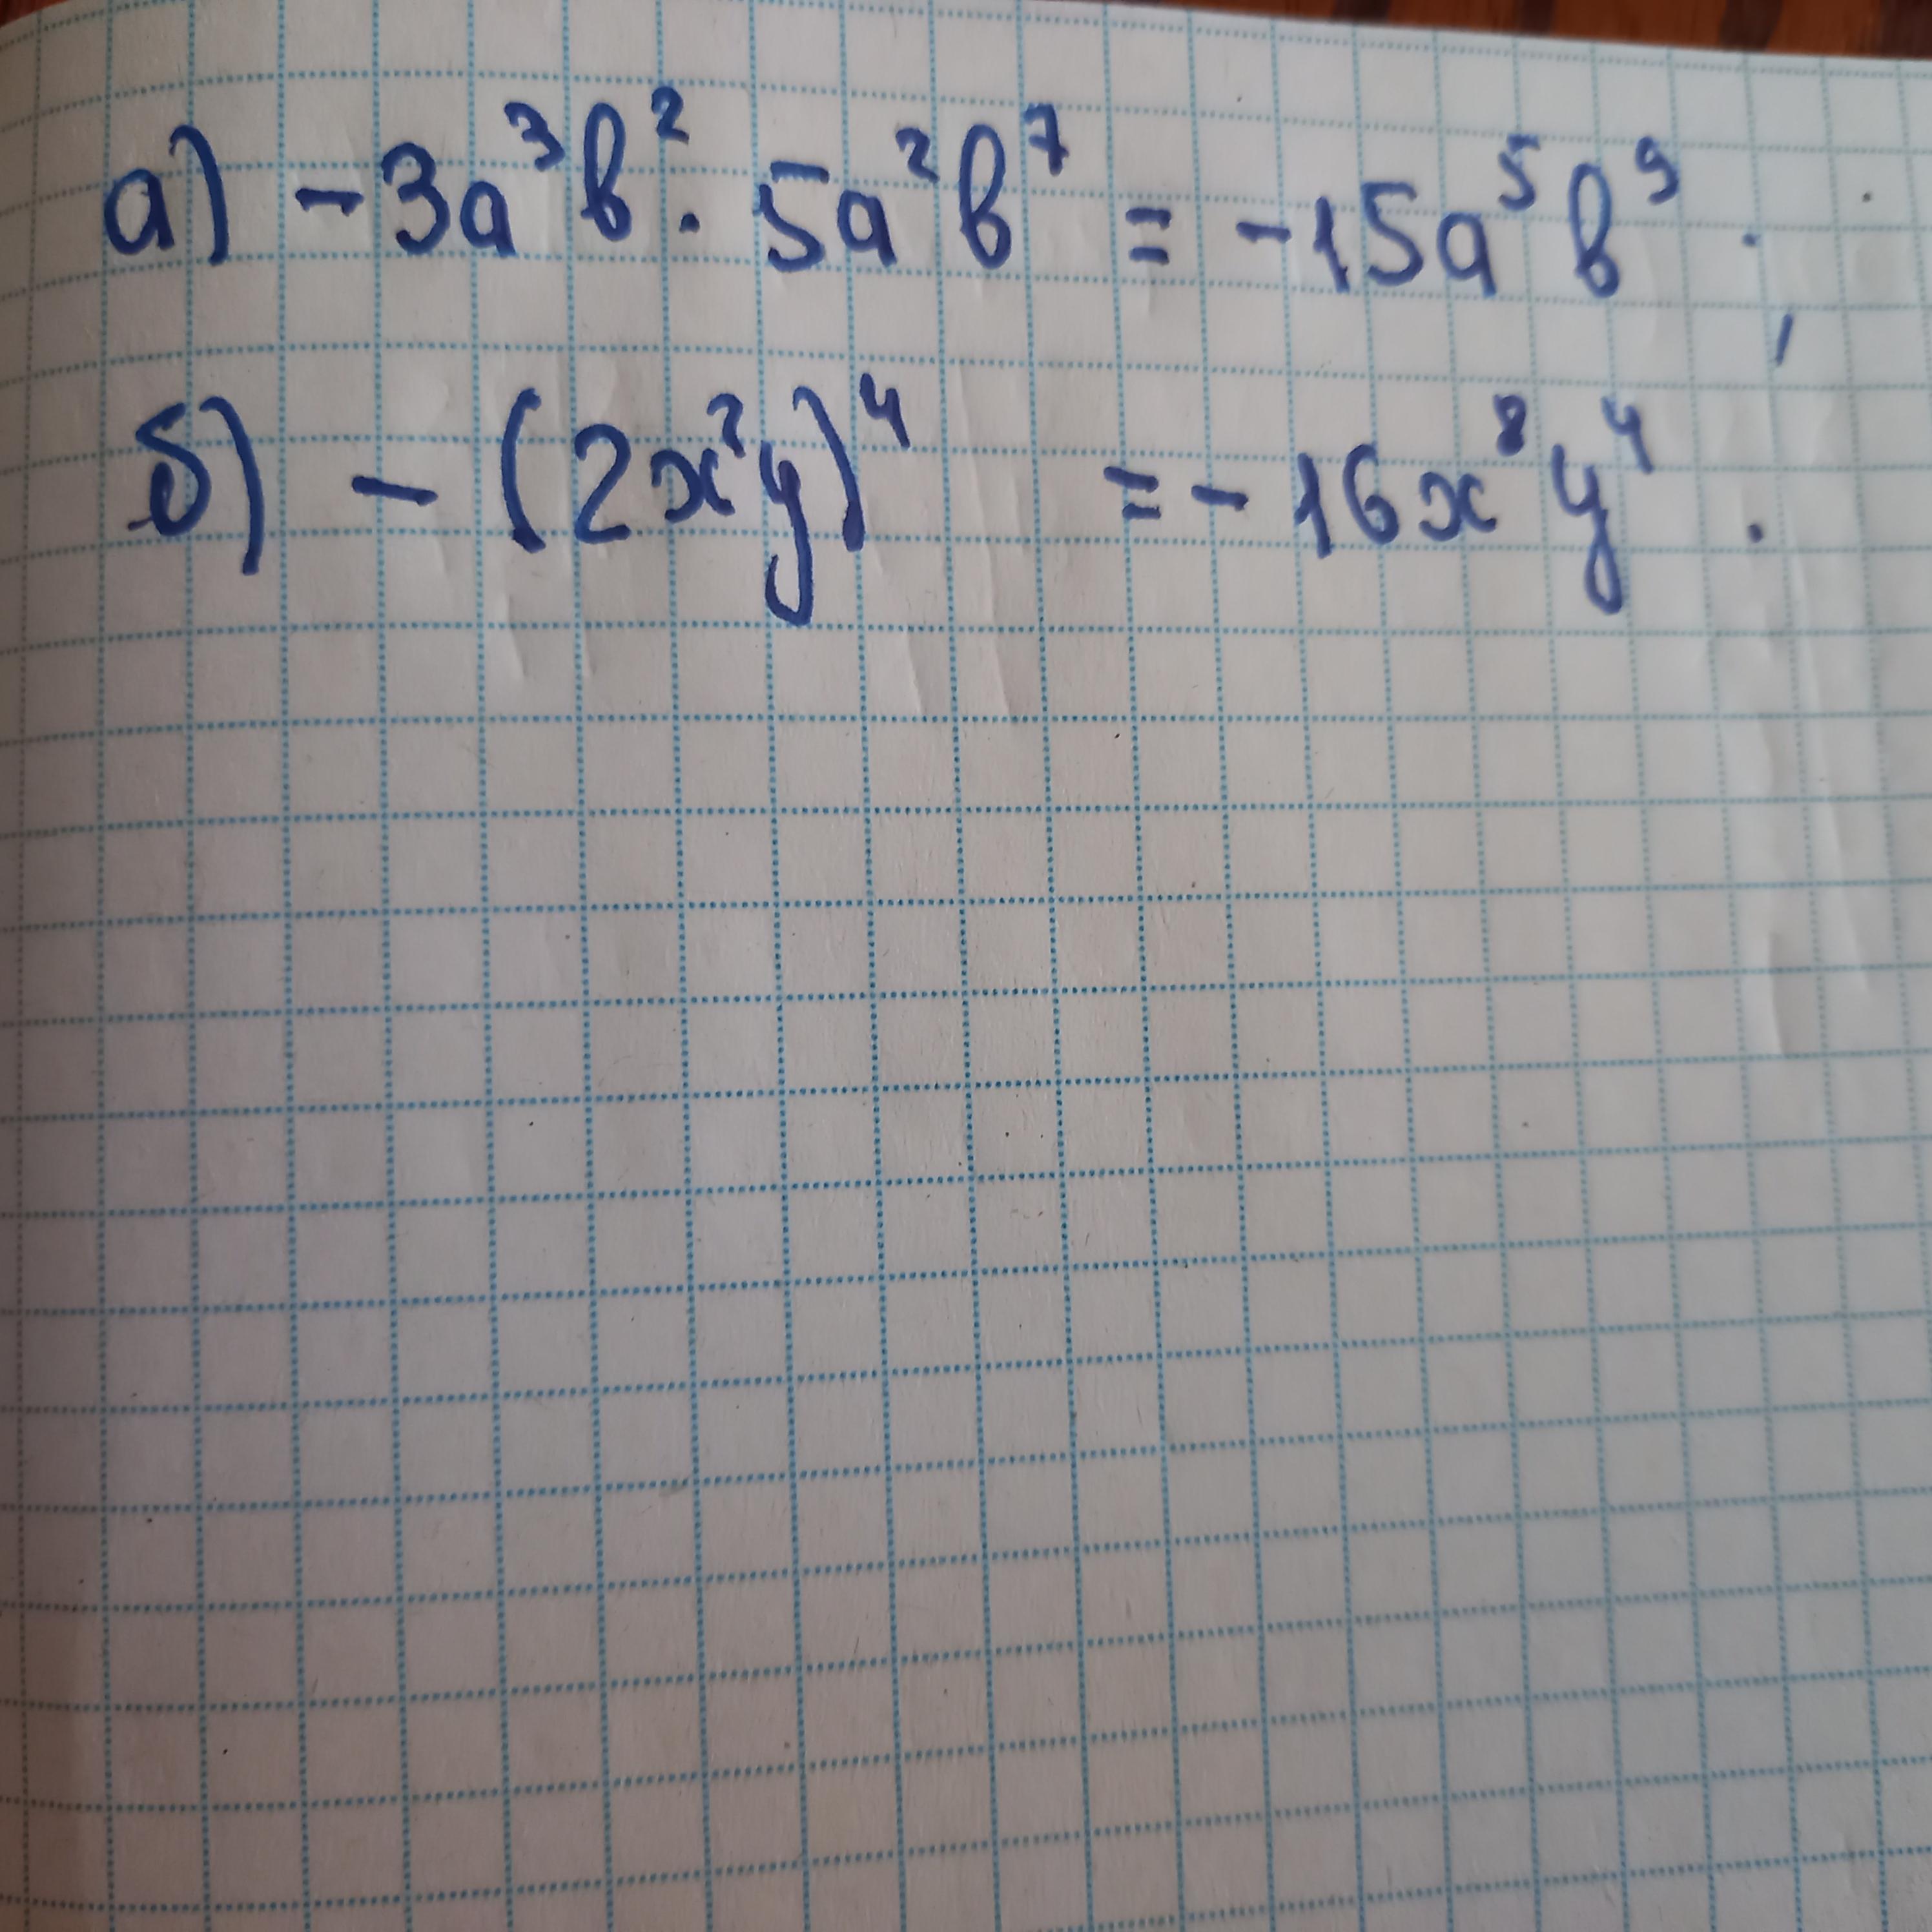 а) -3a³b² · 5a²b⁷ = -15a⁵b⁹ ;
б) - (2x²y)⁴ = - 16x⁸y⁴ .